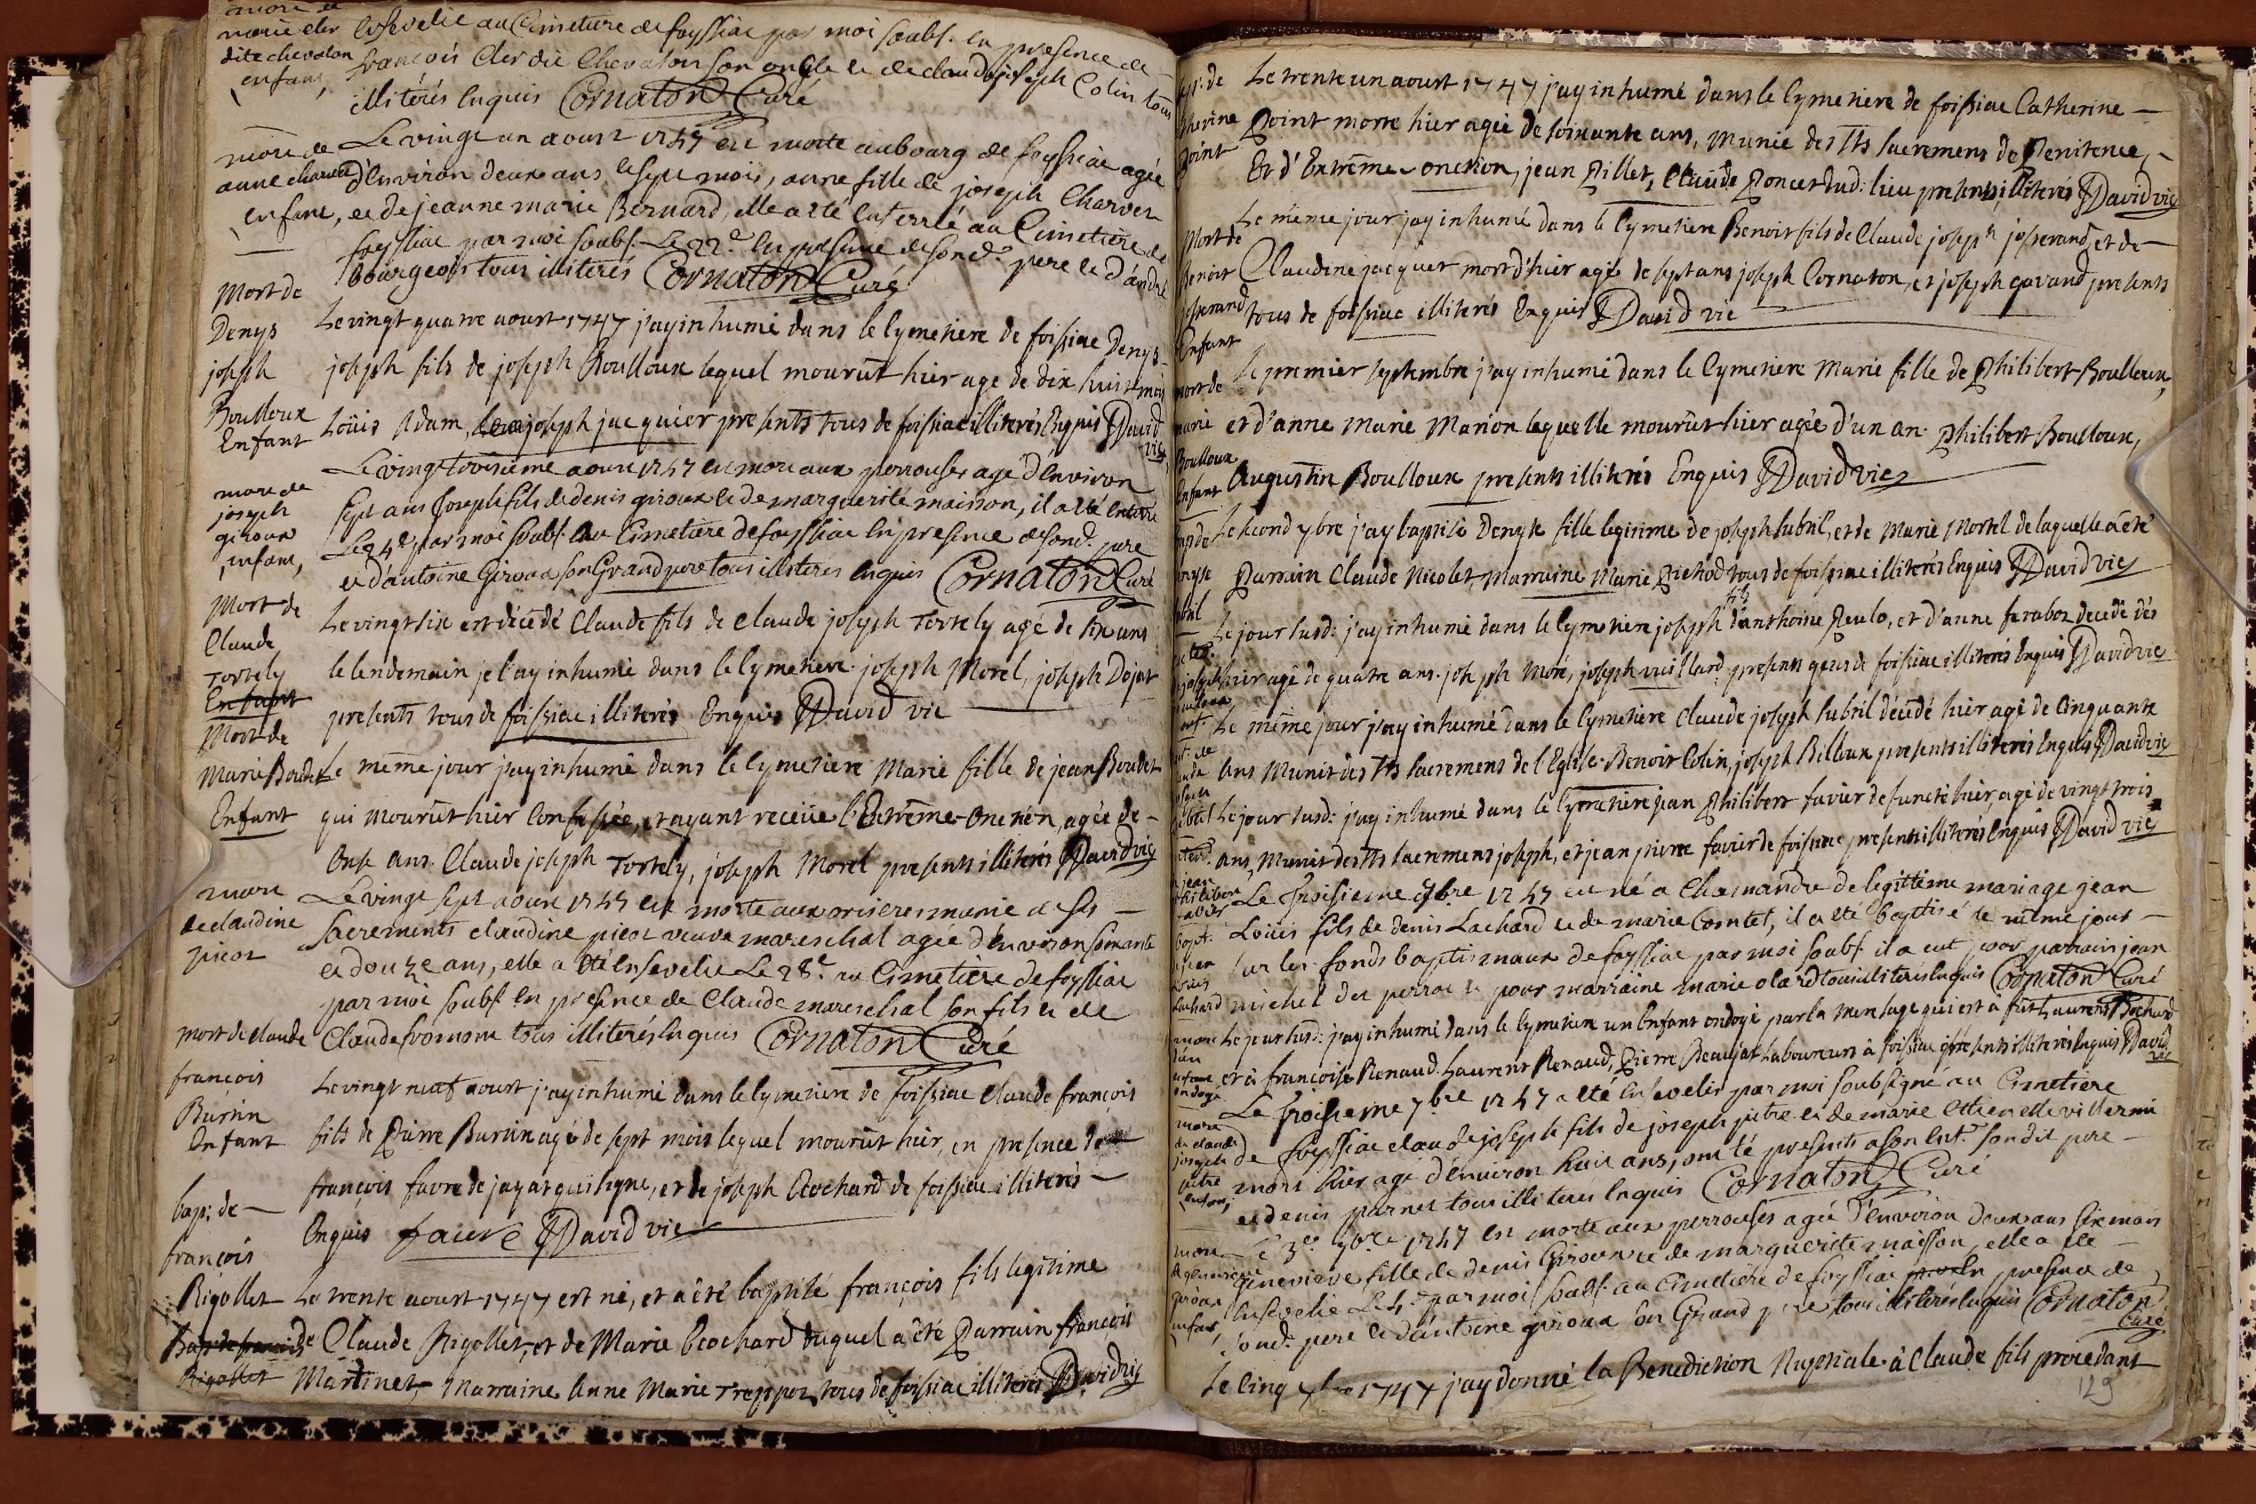 ensevelie au Cimetiere de foyssiac par moi soubs. en presence de
françois Cler dit Chevalon son oncle et de claude joseph Colin tous
illiterés Enquis Cornaton Curé
mort de
marie cler
dite chevalon
enfant,
Le vingt un aoust 1747 est morte au bourg de foyssiac agée
d'environ deux ans et sept mois, anne fille de joseph Charvet
et de jeanne marie Bernard, elle a eté enterré au Cimetiere de
foyssiac par moi soubs. Le 22e en presence de sond. pere et d'andré
bourgeois tous illiterés Cornaton Curé
mort de
anne charvet
enfant,
Mort de
Denys
joseph
Boulloux
Enfant
Le vingt quatre aoust 1747 j'ay inhumé dans le cymetiere de foissiac Denys
joseph fils de joseph Boulloux lequel mourût hier agé de dix huit mois
Loüis Adam, joseph jacquier presents tous de foissiac illiterés Enquis David
vic
mort de
joseph
giroux
enfant,
Le vingt troisieme aoust 1747 est mort aux perrouses agé d'Environ
sept ans Joseph fils de denis giroux et de marguerite maisson, il a eté enterré
Le 24e par moi soubs. au Cimetiere de foyssiac en presence de sond. pere
et d'antoine Giroux son Grand pere tous illiteres enquis Cornaton Curé
Mort de
Claude
Tortely
Enfant
Le vingt six est décedé Claude fils de Claude joseph Tortely agé de six ans
le lendemain je l'ay inhumé dans le cymetiere. joseph Morel, joseph Dojat
presents tous de foissiac illiterés Enquis David vic
Mort de
Marie Boudet
Enfant
Le même jour j'ay inhumé dans le cymetiere Marie fille de jean Boudet
qui mourût hier Confessée, et ayant receüe l'Extrême-Onction, agée de
Onse ans. Claude joseph Tortely, joseph Morel presents illiterés David vic
mort
de claudine
picot
Le vingt sept aoust 1747 est morte aux munie de ses
sacrements claudine picot veuve mareschal agée d'environ soixante
et douze ans, elle a eté Ensevelie Le 28e au Cimetiere de foyssiac
par moi soubs. en presence de Claude mareschal son fils et de
Claude tous illiterés Enquis Cornaton Curé
mort de claude
françois
Burtin
Enfant
Le vingt neuf aoust j'ay inhumé dans le cymetiere de foissiac Claude françois
fils de Pierre Burtin agé de sept mois lequel mourût hier, en presence de
françois favre de jayat qui signe, et de joseph Cochard de foissiac illiterés
Enquis favre David vic
bap: de
françois
Rigollet
Le trente aoust 1747 est né, et a été baptisé françois fils legitime
de Claude Rigollet, et de Marie Cochard duquel a été Parrain françois
Martinet, Marraine Anne Marie tous de foissiac illiterés David vic
Le trente un aoust 1747 j'ay inhumé dans le Cymetiere de foissiac Catherine
Point morte hier agée de soixante ans, Munie des sts sacremens de Penitence,
Et d'Extrême-onction, jean Pillet, Claude Poncet dud: lieu presents illiterés David vic
Mort de
Benoit
josserand
Enfant
Le même jour j'ay inhumé dans le Cymetiere Benoit fils de Claude joseph josserand, et de
Claudine jacquet mort d'hier agé de sept ans joseph Cornaton, et joseph gavand presents
tous de foissiac illiterés Enquis David vic
mort de
marie
Boulloux
Enfant
Le premier septembre j'ay inhumé dans le Cymetiere Marie fille de Philibert Boulloux,
et d'anne Marie Marion laquelle mourût hier agée d'un an. Philibert Boulloux,
Augustin Boulloux presents illiterés Enquis David vic
Le second 7bre j'ay baptisé Denyse fille legitime de joseph subril, et de Marie Mortel de laquelle a été
Parrain Claude Nicolet, Marraine Marie tous de foissiac illiterés Enquis David vic
Le jour susd: j'ay inhumé dans le Cymetiere joseph fils d'anthoine et d'anne decedé dés
hier agé de quatre ans. joseph Moré, joseph vuillard presents de foissiac illiterés Enquis David vic
Le même jour j'ay inhumé dans le Cymetiere Claude joseph subril décédé hier agé de Cinquante
Ans Munit des sts sacremens de l'Eglise. Benoit Colin, joseph Billoux presents illiterés Enquis David vic
Le jour susd: j'ay inhumé dans le Cymetiere jean Philibert favier defunct hier agé de vingt trois
ans, Munit des sts sacremens joseph, et jean pierre favier de foissiac presents illiterés Enquis David vic
Le Troisieme 7bre 1747 est né a Chamandre de legittime mariage jean
Loüis fils de denis Lachard et de marie Comtet, il a eté baptisé le même jour
sur les fonds baptismaux de foyssiac par moi soubs. il a eut pour parrain jean
michel et pour marraine marie tous illiterés Enquis Cornaton Curé
Le jour susd: j'ay inhumé dans le Cymetiere un Enfant ondoyé par la Mensage qui est à Laurent Bochard
et à françoise Renaud. Laurent Renaud, Pierre Beaujat Laboureurs à foissiac presents illiterés Enquis David
vic
Le Troisieme 7bre 1747 a eté Ensevelis par moi soubsigné au Cimetiere
de foyssiac claude joseph fils de joseph putre et de marie villermi
mort hier agé d'environ huit ans, ont té presents a son Ent. son dit pere
et denis tous illiterés Enquis Cornaton Curé
Le 3e 7bre 1747 est morte aux perrouses agée d'environ deux ans six mois
Genevieve, fille de denis Giroux et de marguerite maisson, elle a eté
Ensevelie Le 4e par moi soubs. au Cimetiere de foyssiac en presence de
sond. pere et d'antoine giroux son Grand pere tous illiterés Enquis Cornaton
Curé
Le Cinq 7bre 1747 j'ay donné la Benediction Nuptiale à Claude fils procedant
129